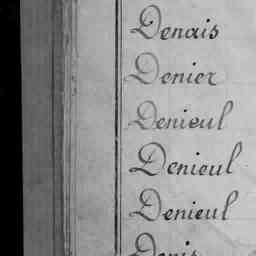 Denais
Denier
Denieul
Denieul
Denieul
Denis